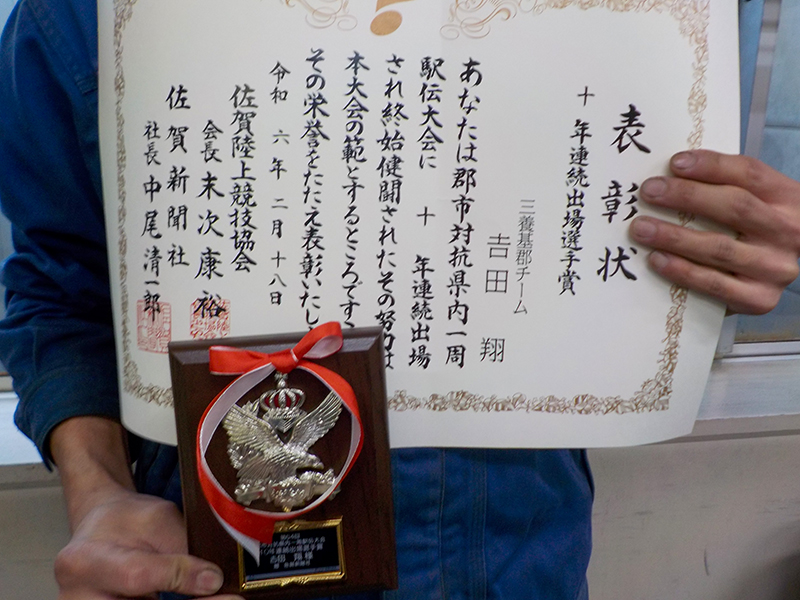 表彰状
十年連続出場選手賞
三養基郡チーム
吉田 翔
あなたは郡市対抗県内一周
駅伝大会に 十 年連続出場
され終始健闘されたその努力は
本大会の範とするところです
その栄誉をたたえ表彰いたし
令和 六年 二月 十八日
佐賀陸上競技協会
会長 末次康裕
佐賀新聞社
社長 中尾清一郎
10年連続出場選手賞
吉田 翔 様